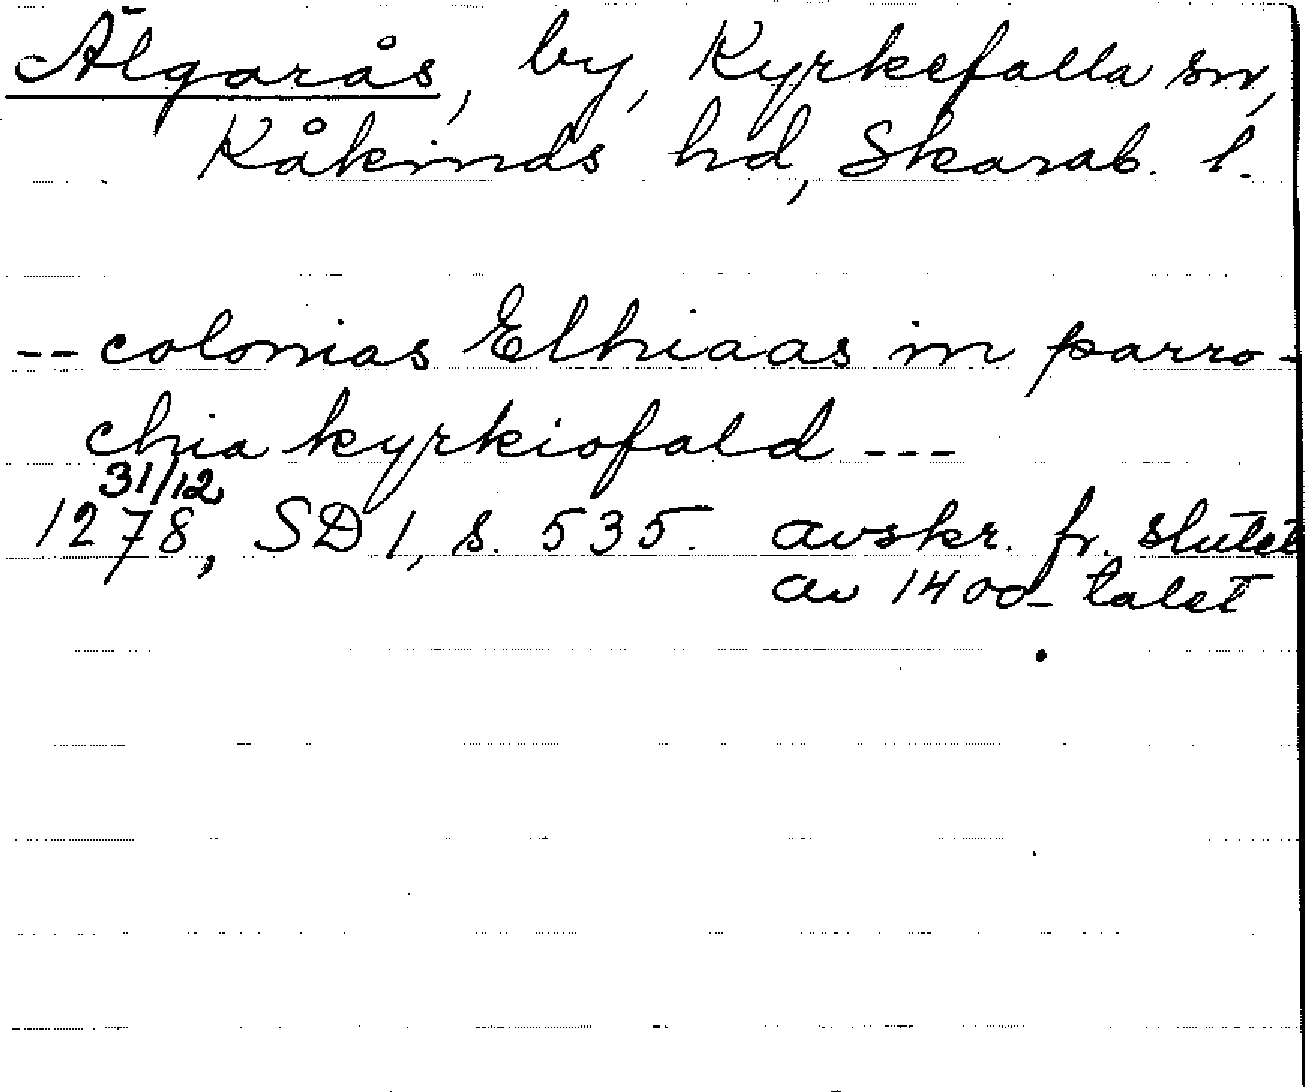 Älgarås, by, Kyrkefalla sn,
Kåkinds hd, Skarab. l.
-- colonias Elhiaas in parro-
chia kyrkiofald ---
31/12
1278, SD 1, s. 535. avskr. fr. slutet
av 1400-talet